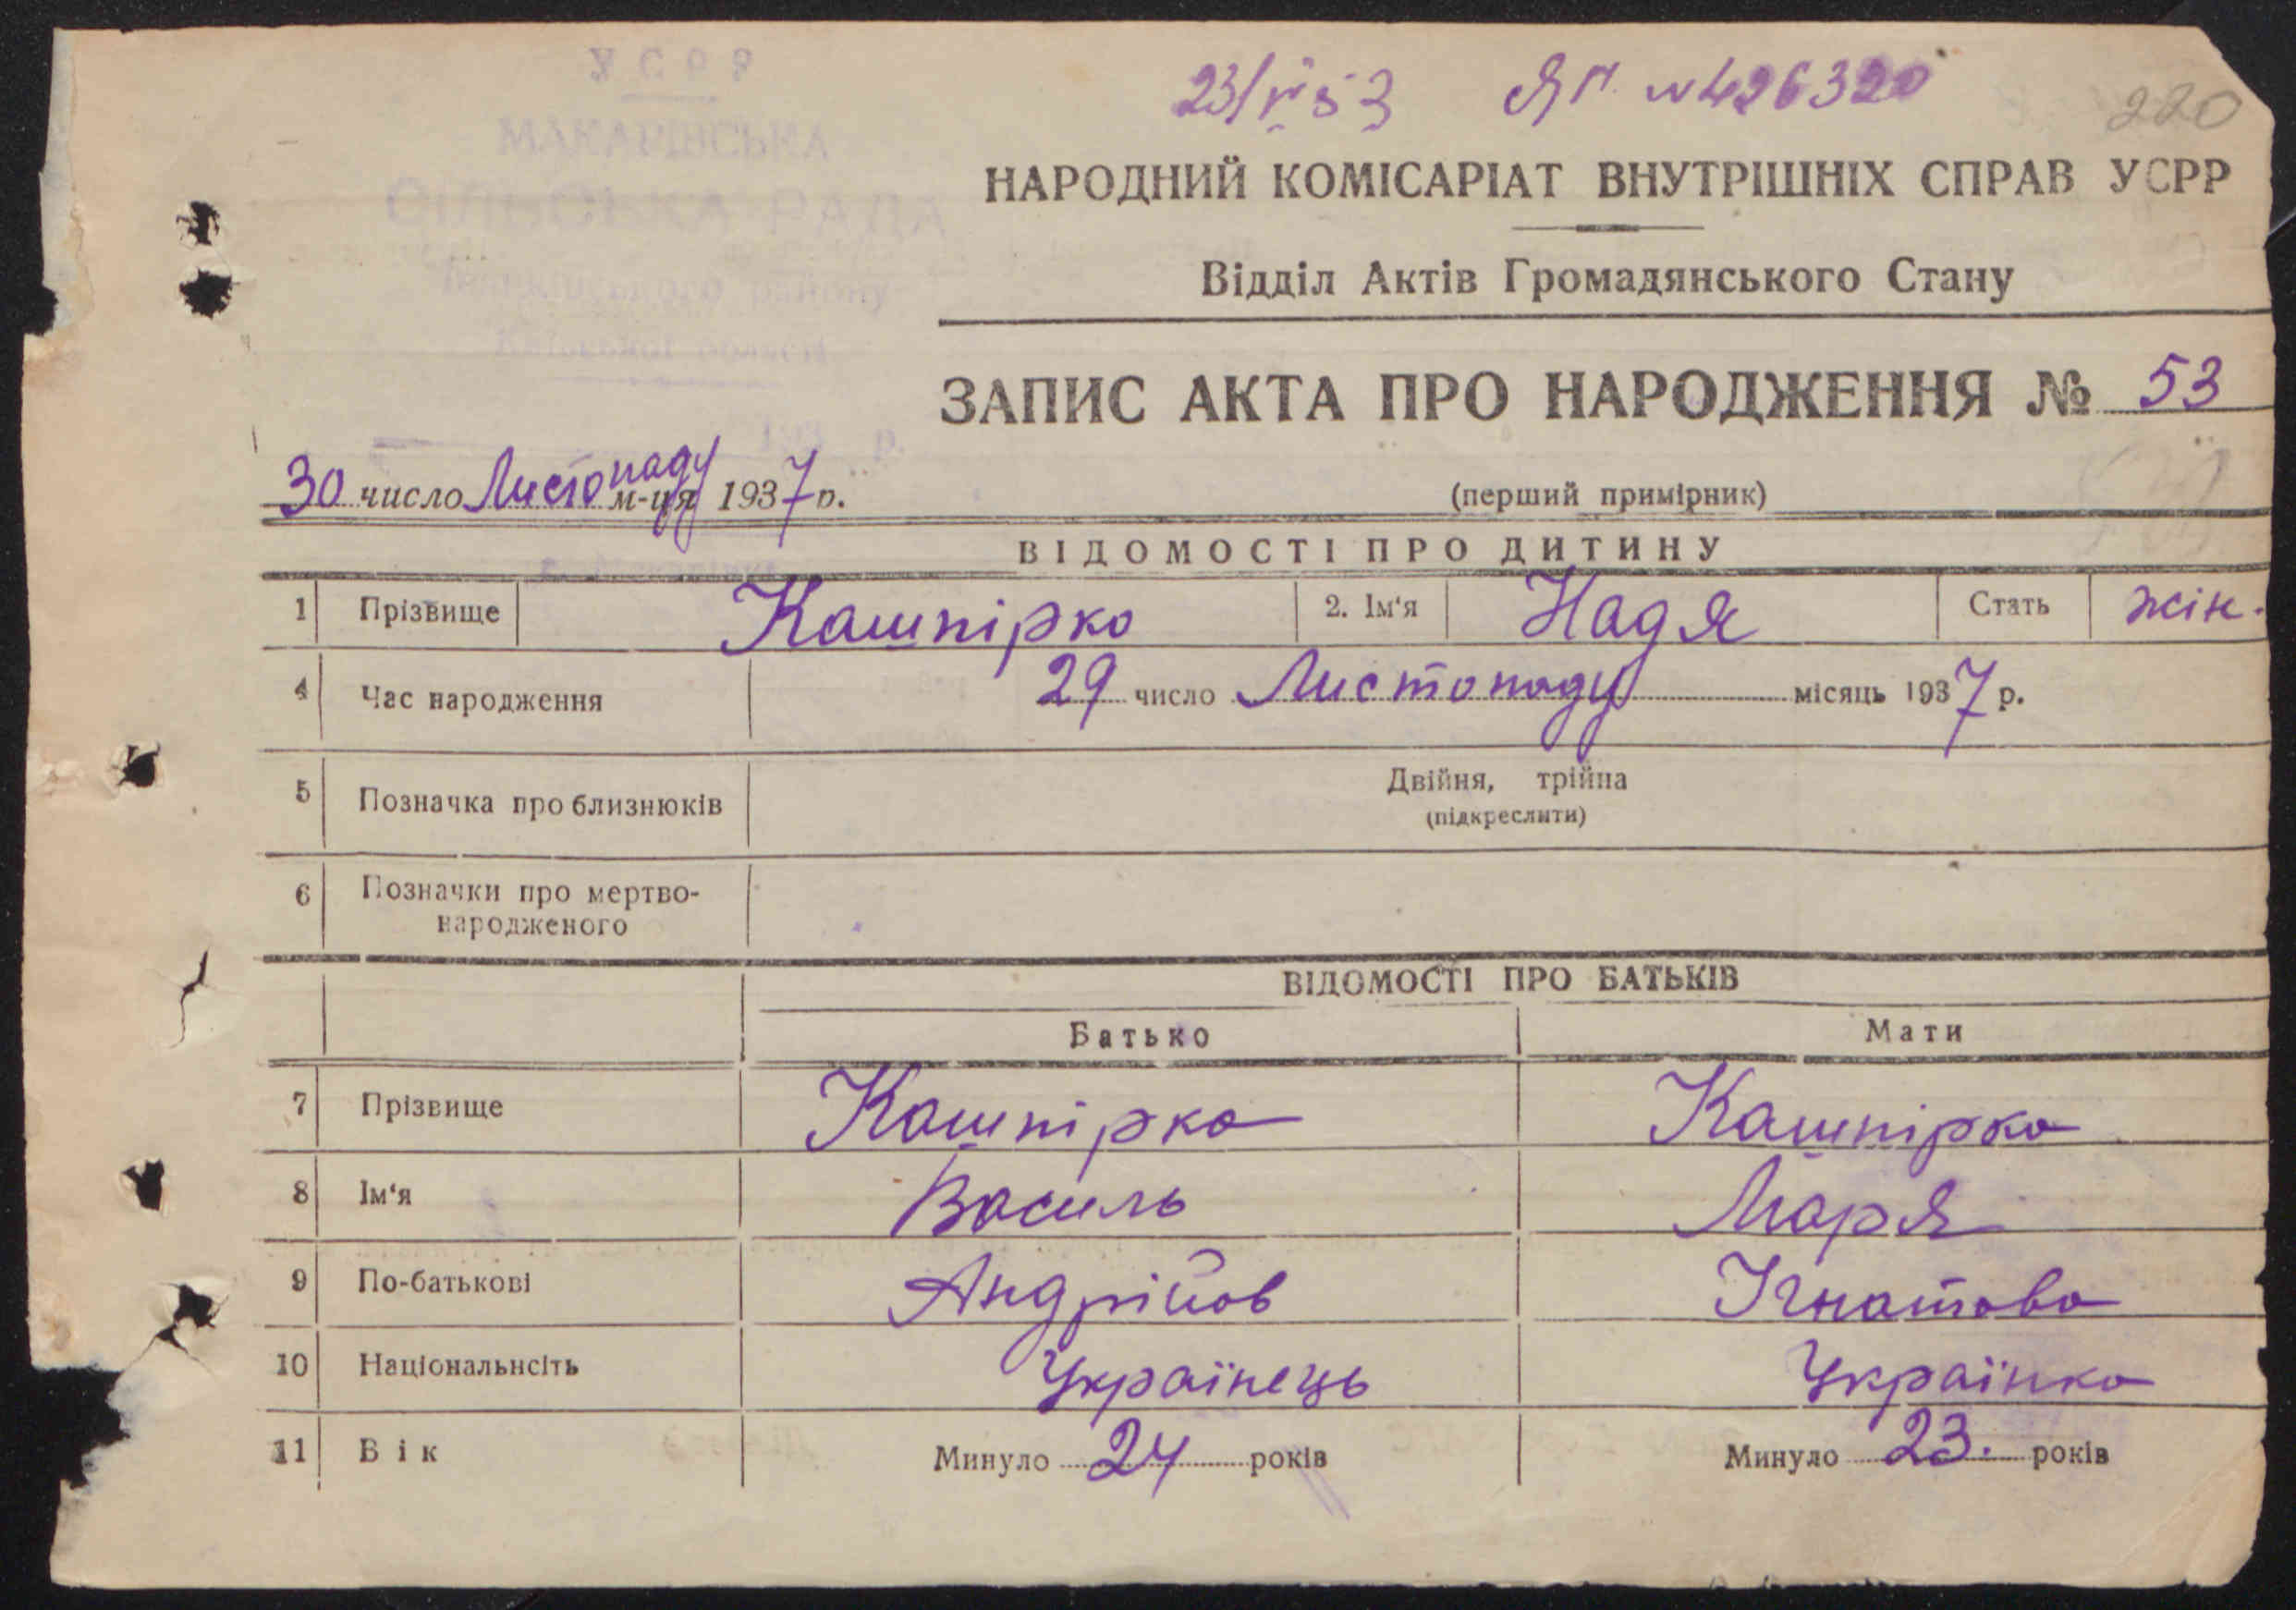 УСРР
МАКАРІВСЬКА
СІЛЬСЬКА РАДА
району
Київської області
193 р.
23/V 53 ЯП №426320
220
НАРОДНИЙ КОМІСАРІАТ ВНУТРІШНІХ СПРАВ УСРР
Відділ Актів Громадянського Стану
ЗАПИС АКТА ПРО НАРОДЖЕННЯ № 53
30 число Листопаду м-ця 1937 р.
(перший примірник)
ВІДОМОСТІ ПРО ДИТИНУ
1 Прізвище Кашпірко 2. Ім‘я Надя Стать жін.
4 Час народження 29 число Листопаду місяць 1937 р.
5 Позначка про близнюків Двійня, трійна
(підкреслити)
6 Позначки про мертво-
народженого
ВІДОМОСТІ ПРО БАТЬКІВ
Батько Мати
7 Прізвище Кашпірко Кашпірко
8 Ім‘я Василь Маря
9 По-батькові Андрійов Ігнатова
10 Національнсіть Українець Українка
11 Вік Минуло 24 років Минуло 23. років